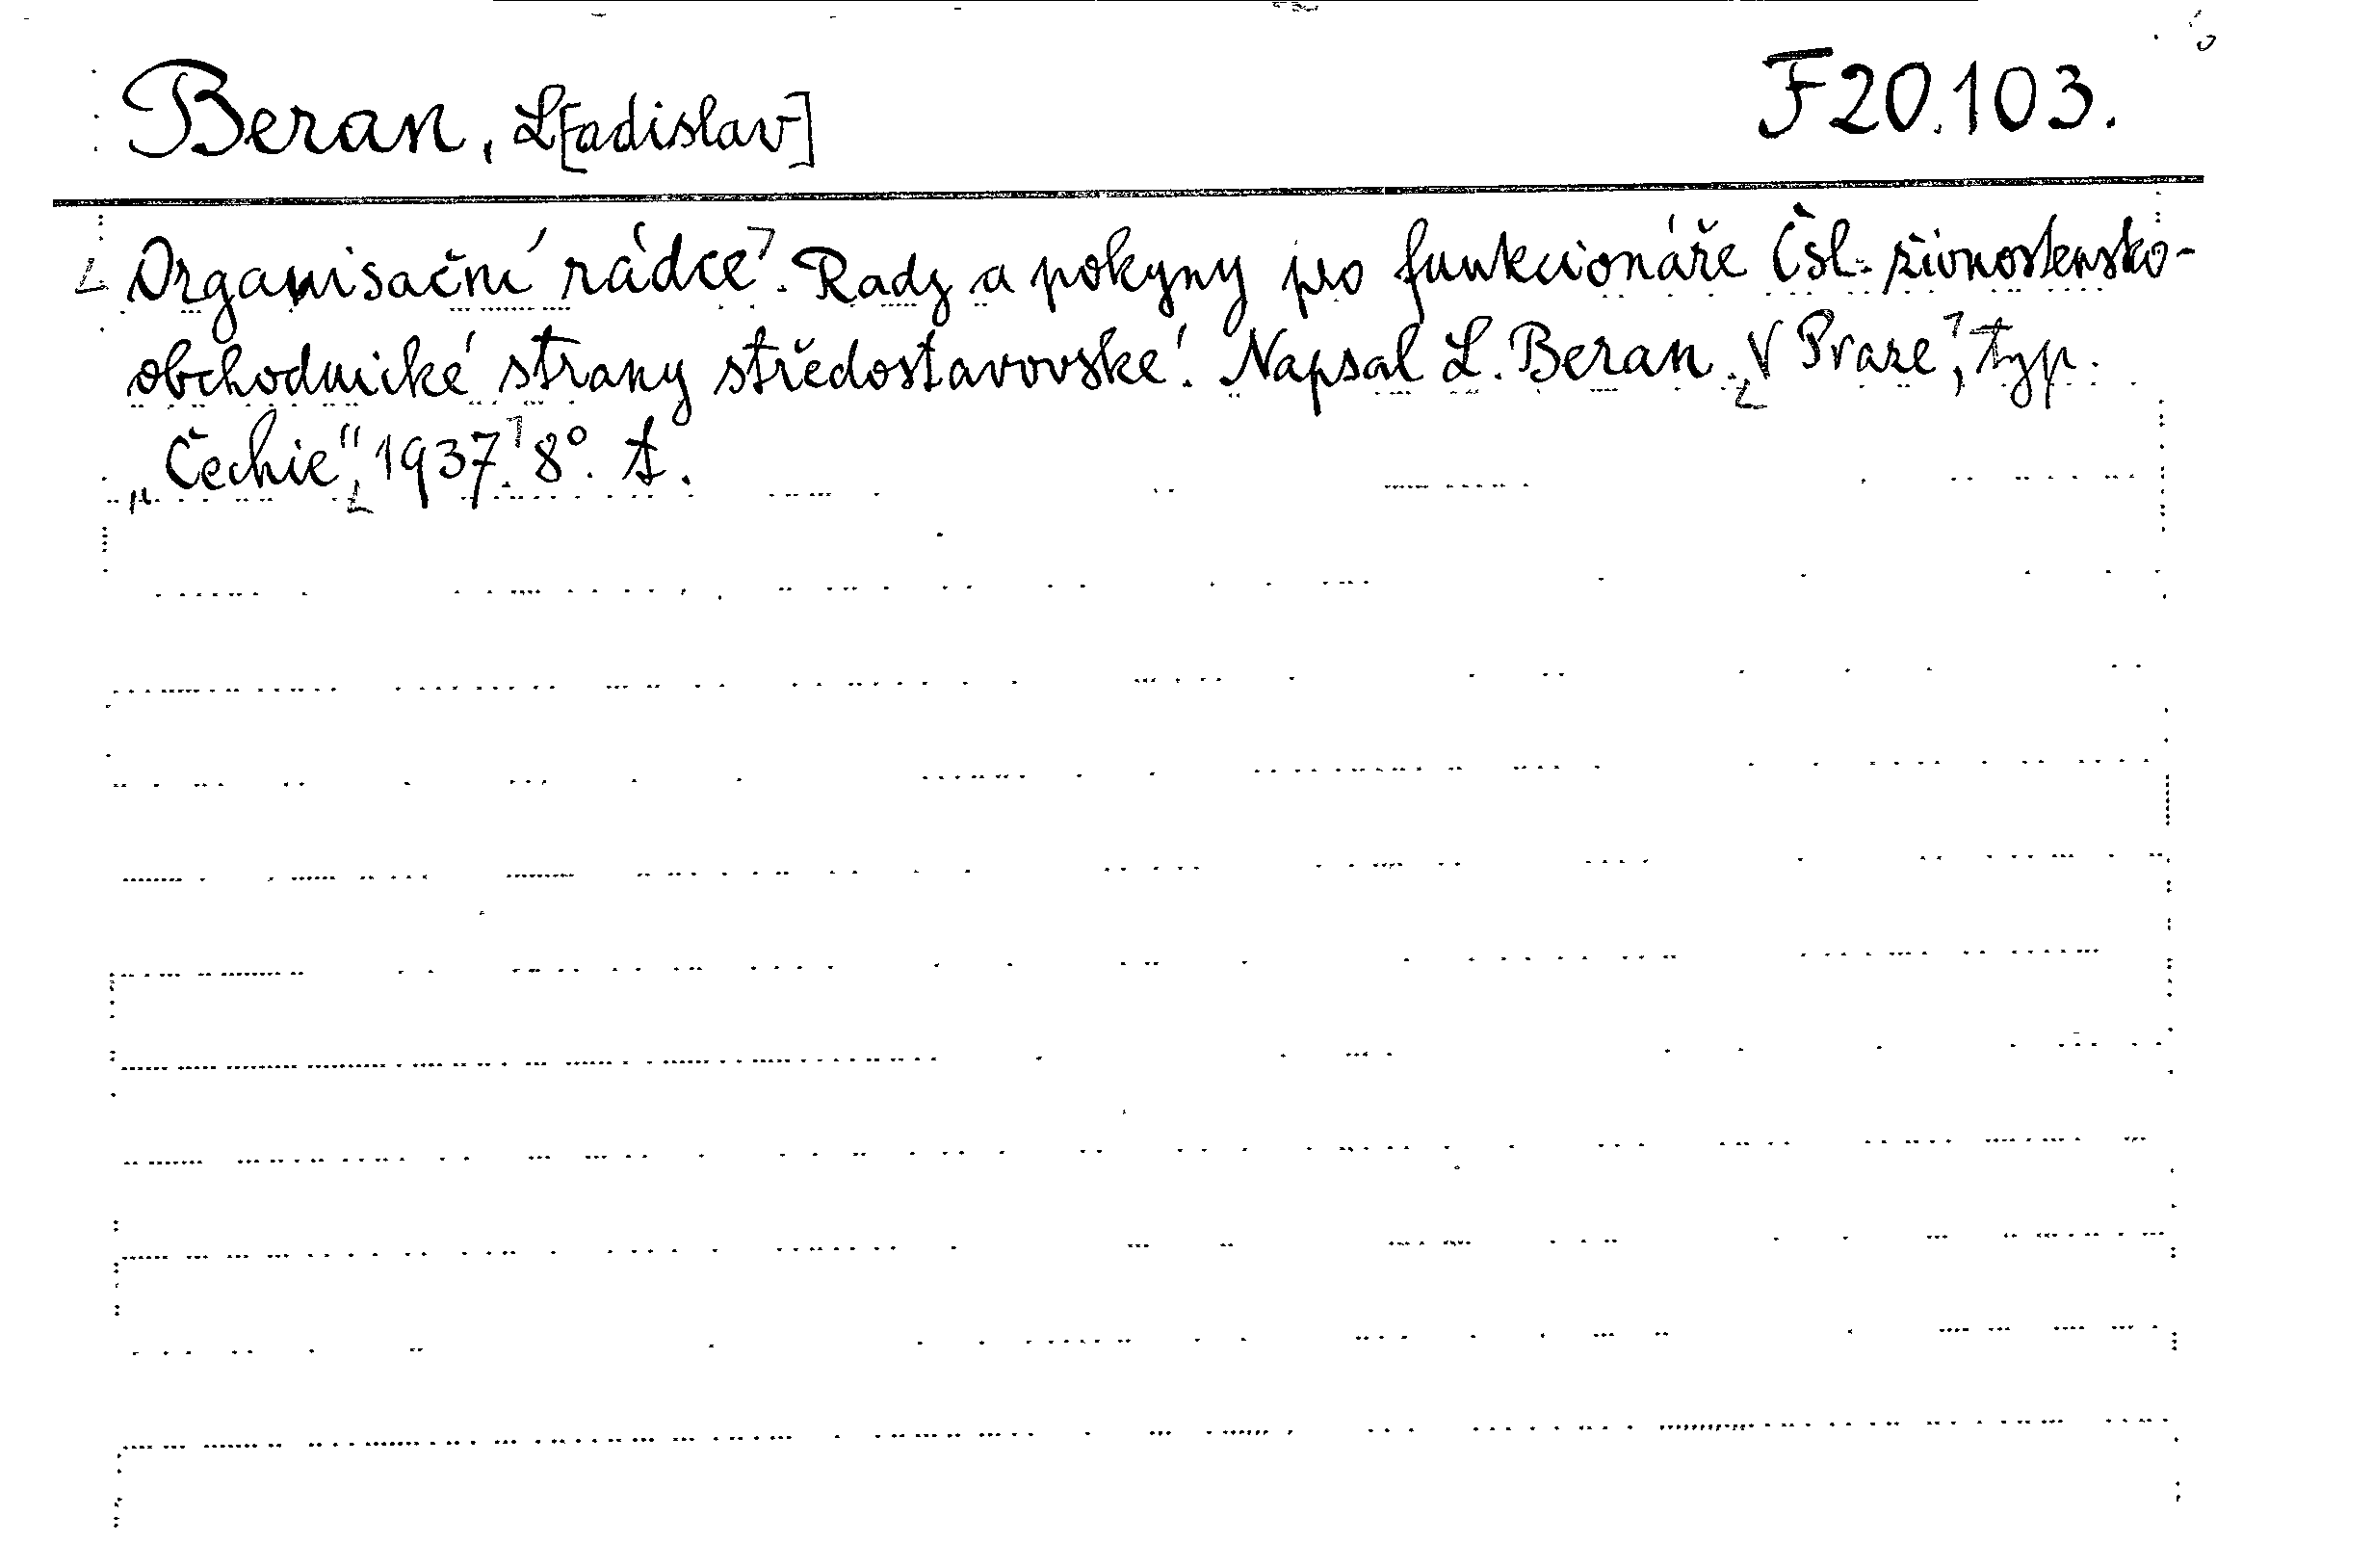 Beran, L[adislav]
F 20.103.
Organisační rádce. Rady a pokyny pro funkcionáře Čsl. živnostensko-
obchodnické strany středostavovské. Napsal L. Beran. V Praze, typ.
„Čechie“, 1937. 8°. A.